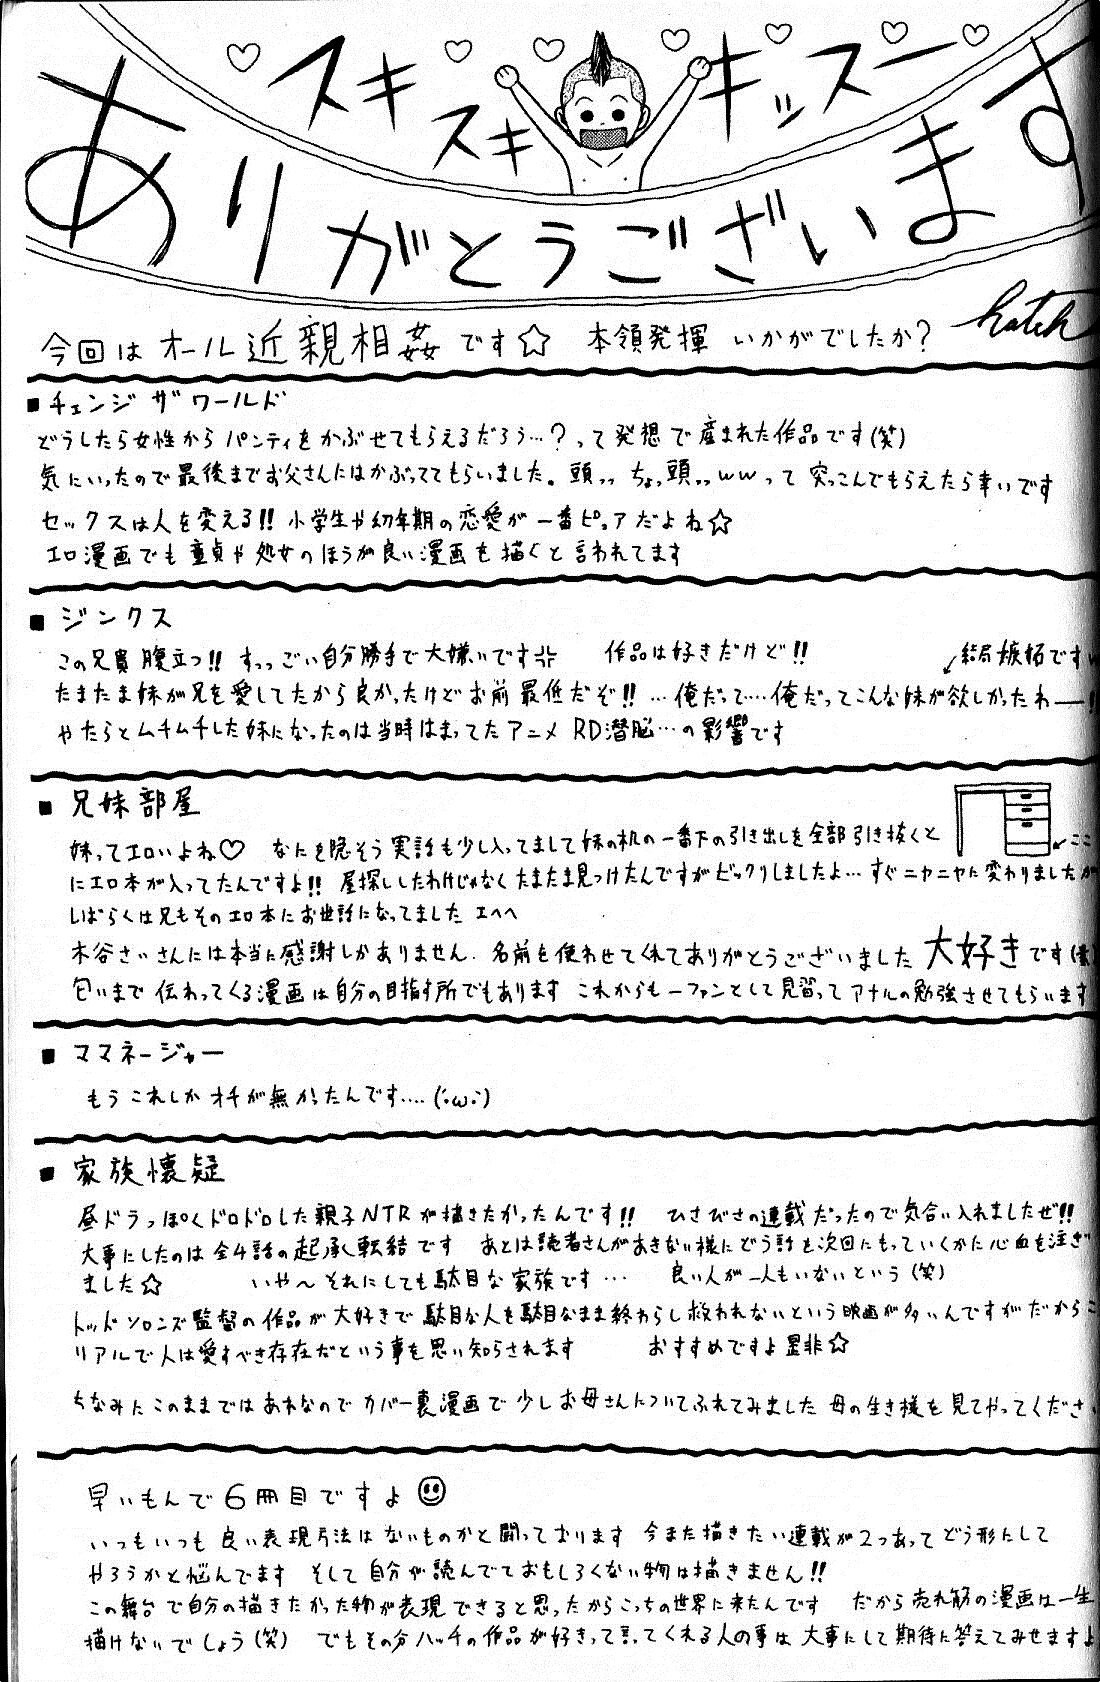 スキスキキッズー
ありがとうございます
hatch
今回はオール近親相姦です☆ 本領発揮 いかがでしたか?
■チェンジ ザ ワールド
どうしたら女性からパンティをかぶせてもらえるだろう…?って発想で産まれた作品です(笑)
気にいったので最後までお父さんにはかぶっててもらいました。頭ッ ちょッ頭ッwwって突っこんでもらえたら幸いです
セックスは人を変える!! 小学生や幼年期の恋愛が一番ピュアだよね☆
エロ漫画でも童貞や処女のほうが良い漫画を描くと言われてます
■ジンクス
この兄貴腹立つ!! すっっごい自分勝手で大嫌いです 作品は好きだけど!! ↙結局嫉妬ですw
たまたま妹が兄を愛してたから良かったけどお前最低だぞ!! …俺だって…俺だってこんな妹が欲しかったわ——!!
やたらとムチムチした妹になったのは当時はまってたアニメ RD潜脳…の影響です
■兄妹部屋
妹ってエロいよね♡ なにを隠そう実話も少し入ってまして妹の机の一番下の引き出しを全部引き抜くと
←ここ
にエロ本が入ってたんですよ!! 屋探ししたわけじゃなくたまたま見つけたんですがビックリしましたよ…すぐニヤニヤに変わりましたが
しばらくは兄もそのエロ本にお世話になってました エヘヘ
木谷さいさんには本当に感謝しかありません。名前を使わせてくれてありがとうございました 大好きです
匂いまで伝わってくる漫画は自分の目指す所でもあります これからも一ファンとして見習ってアナルの勉強させてもらいます
■ママネージャー
もうこれしかオチが無かったんです….(´・ω・`)
■家族懐疑
昼ドラっぽくドロドロした親子NTRが描きたかったんです!! ひさびさの連載だったので気合い入れましたぜ!!
大事にしたのは全4話の起承転結です あとは読者さんがあきない様にどう話を次回にもっていくかに心血を注ぎ
ました☆ いや〜それにしても駄目な家族です… 良い人が一人もいないという(笑)
トッドソロンズ監督の作品が大好きで駄目な人を駄目なまま終わらし救われないという映画が多いんですがだからこ
リアルで人は愛すべき存在だという事を思い知らされます おすすめですよ是非☆
ちなみにこのままではあれなのでカバー裏漫画で少しお母さんについてふれてみました 母の生き様を見てやってくださ
早いもんで6冊目ですよ
いつもいつも良い表現方法はないものかと闘っております 今また描きたい連載が2つあってどう形にして
やろうかと悩んでます そして自分が読んでておもしろくない物は描きません!!
この舞台で自分の描きたかった物が表現できると思ったからこっちの世界に来たんです だから売れ筋の漫画は一生
描けないでしょう(笑) でもその分ハッチの作品が好きって言ってくれる人の事は大事にして期待に答えてみせますよ